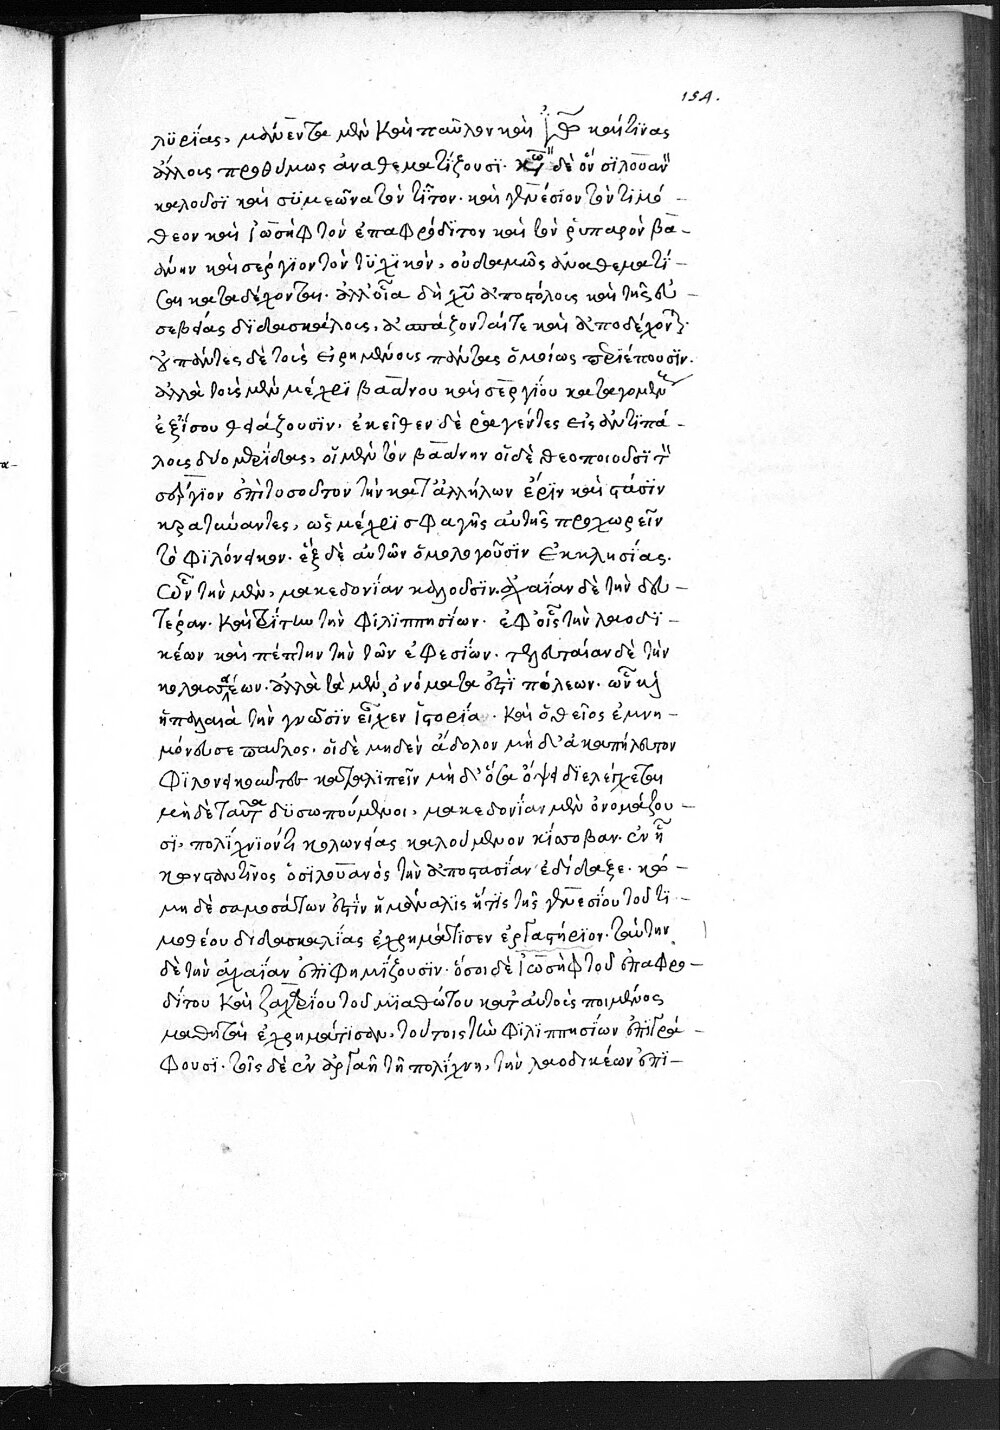 154.
λυρίας, μανέντα μὲν καὶ παῦλον καὶ ἰω καί τινας
ἄλλους προθύμως ἀναθεματίζουσι. κων δὲ ὃν σιλουαν
καλοῦσι καὶ συμεῶνα τὸν τίτον. καὶ γενέσιον τὸν τιμό -
θεον καὶ ἰωσὴφ τὸν ἐπαφρόδιτον καὶ τὸν ῥυπαρὸν βα -
άνην καὶ σέργιον τὸν τυχικὸν, οὐδαμῶς ἀναθεματί -
σαι καταδέχονται. ἀλλ' οἷα δὴ χυ ἀποστόλοις καὶ τῆς εὐ -
σεβείας διδασκάλοις,
πάντες δὲ τοὺς εἰρημένους πάντας ὁμοίως περιέπουσιν.
ἀλλὰ τοὺς μὲν μέχρι βαάνου καὶ σεργίου καταγομεν
ἐξίσου ἐκεῖθεν δὲ ῥαγέντες εἰς ἀντιπά -
λους δύο μερίδας, οἱ μὲν τὸν βαάνην οἱ δὲ θεοποιοῦσι τον
σέργιον ἐπὶ τοσοῦτον τὴν κατ' ἀλλήλων ἔριν καὶ στάσιν
κρατύναντες, ὡς μέχρι σφαγῆς αὐτῆς προχωρεῖν
τὸ φιλόνεικον. ἓξ δὲ αὐτῶν ὁμολογοῦσιν ἐκκλησίας.
ὧν τὴν μὲν, μακεδονίαν καλοῦσιν. ἀχαΐαν δὲ τὴν δευ -
τέραν. καὶ τρίτην τὴν φιλιππησίων. ἐφ' οἷς τὴν λαοδι -
κέων καὶ πέμπτην τὴν τῶν ἐφεσίων. τελευταίαν δὲ τὴν
κολασσαέων. ἀλλὰ τὰ μὲν ὀνόματα ἐστὶ πόλεων. ὧν κ
ἡ παλαιὰ τὴν γνῶσιν εἶχεν ἱστορία. καὶ ὁ θεῖος ἐμνη -
μόνευσε παῦλος. οἱ δὲ μηδὲν ἄδολον μὴ δ' ἀκαπήλευτον
φιλονεικοῦντες καταλιπεῖν μὴ δ' ὅσα ὄψει διελέγχεται
μὴ δὲ ταῦτα δυσωπούμενοι, μακεδονίαν μὲν ὀνομάζου -
σι, πολίχνιόν τι κολωνείας καλούμενον κίμσσβαν. ἐν ᾗ
κωνσταντῖνος ὁ σιλουανὸς τὴν ἀποστασίαν ἐδίδαξε. κώ -
μη δὲ σαμοσάτων ἐστὶν ἡ μάναλις ἥτις τῆς γενεσίου τοῦ τι -
μοθέου διδασκαλίας ἐχρημάτισεν ἐργαστήριον. ταύτην
δὲ τὴν ἀχαΐαν ἐπιφημίζουσιν. ὅσοι δὲ ἰωσὴφ τοῦ ἐπαφρο -
δίτου καὶ ζαχαρίου τοῦ μισθωτοῦ κατ' αὐτοὺς ποιμένος
μαθηταὶ ἐχρημάτισαν, τούτοις τὴν φιλιππησίων ἐπιγρά -
φουσι. τοῖς δὲ ἐν ἀργαῆ τῆ πολίχνη, τὴν λαοδικέων ἐπι -